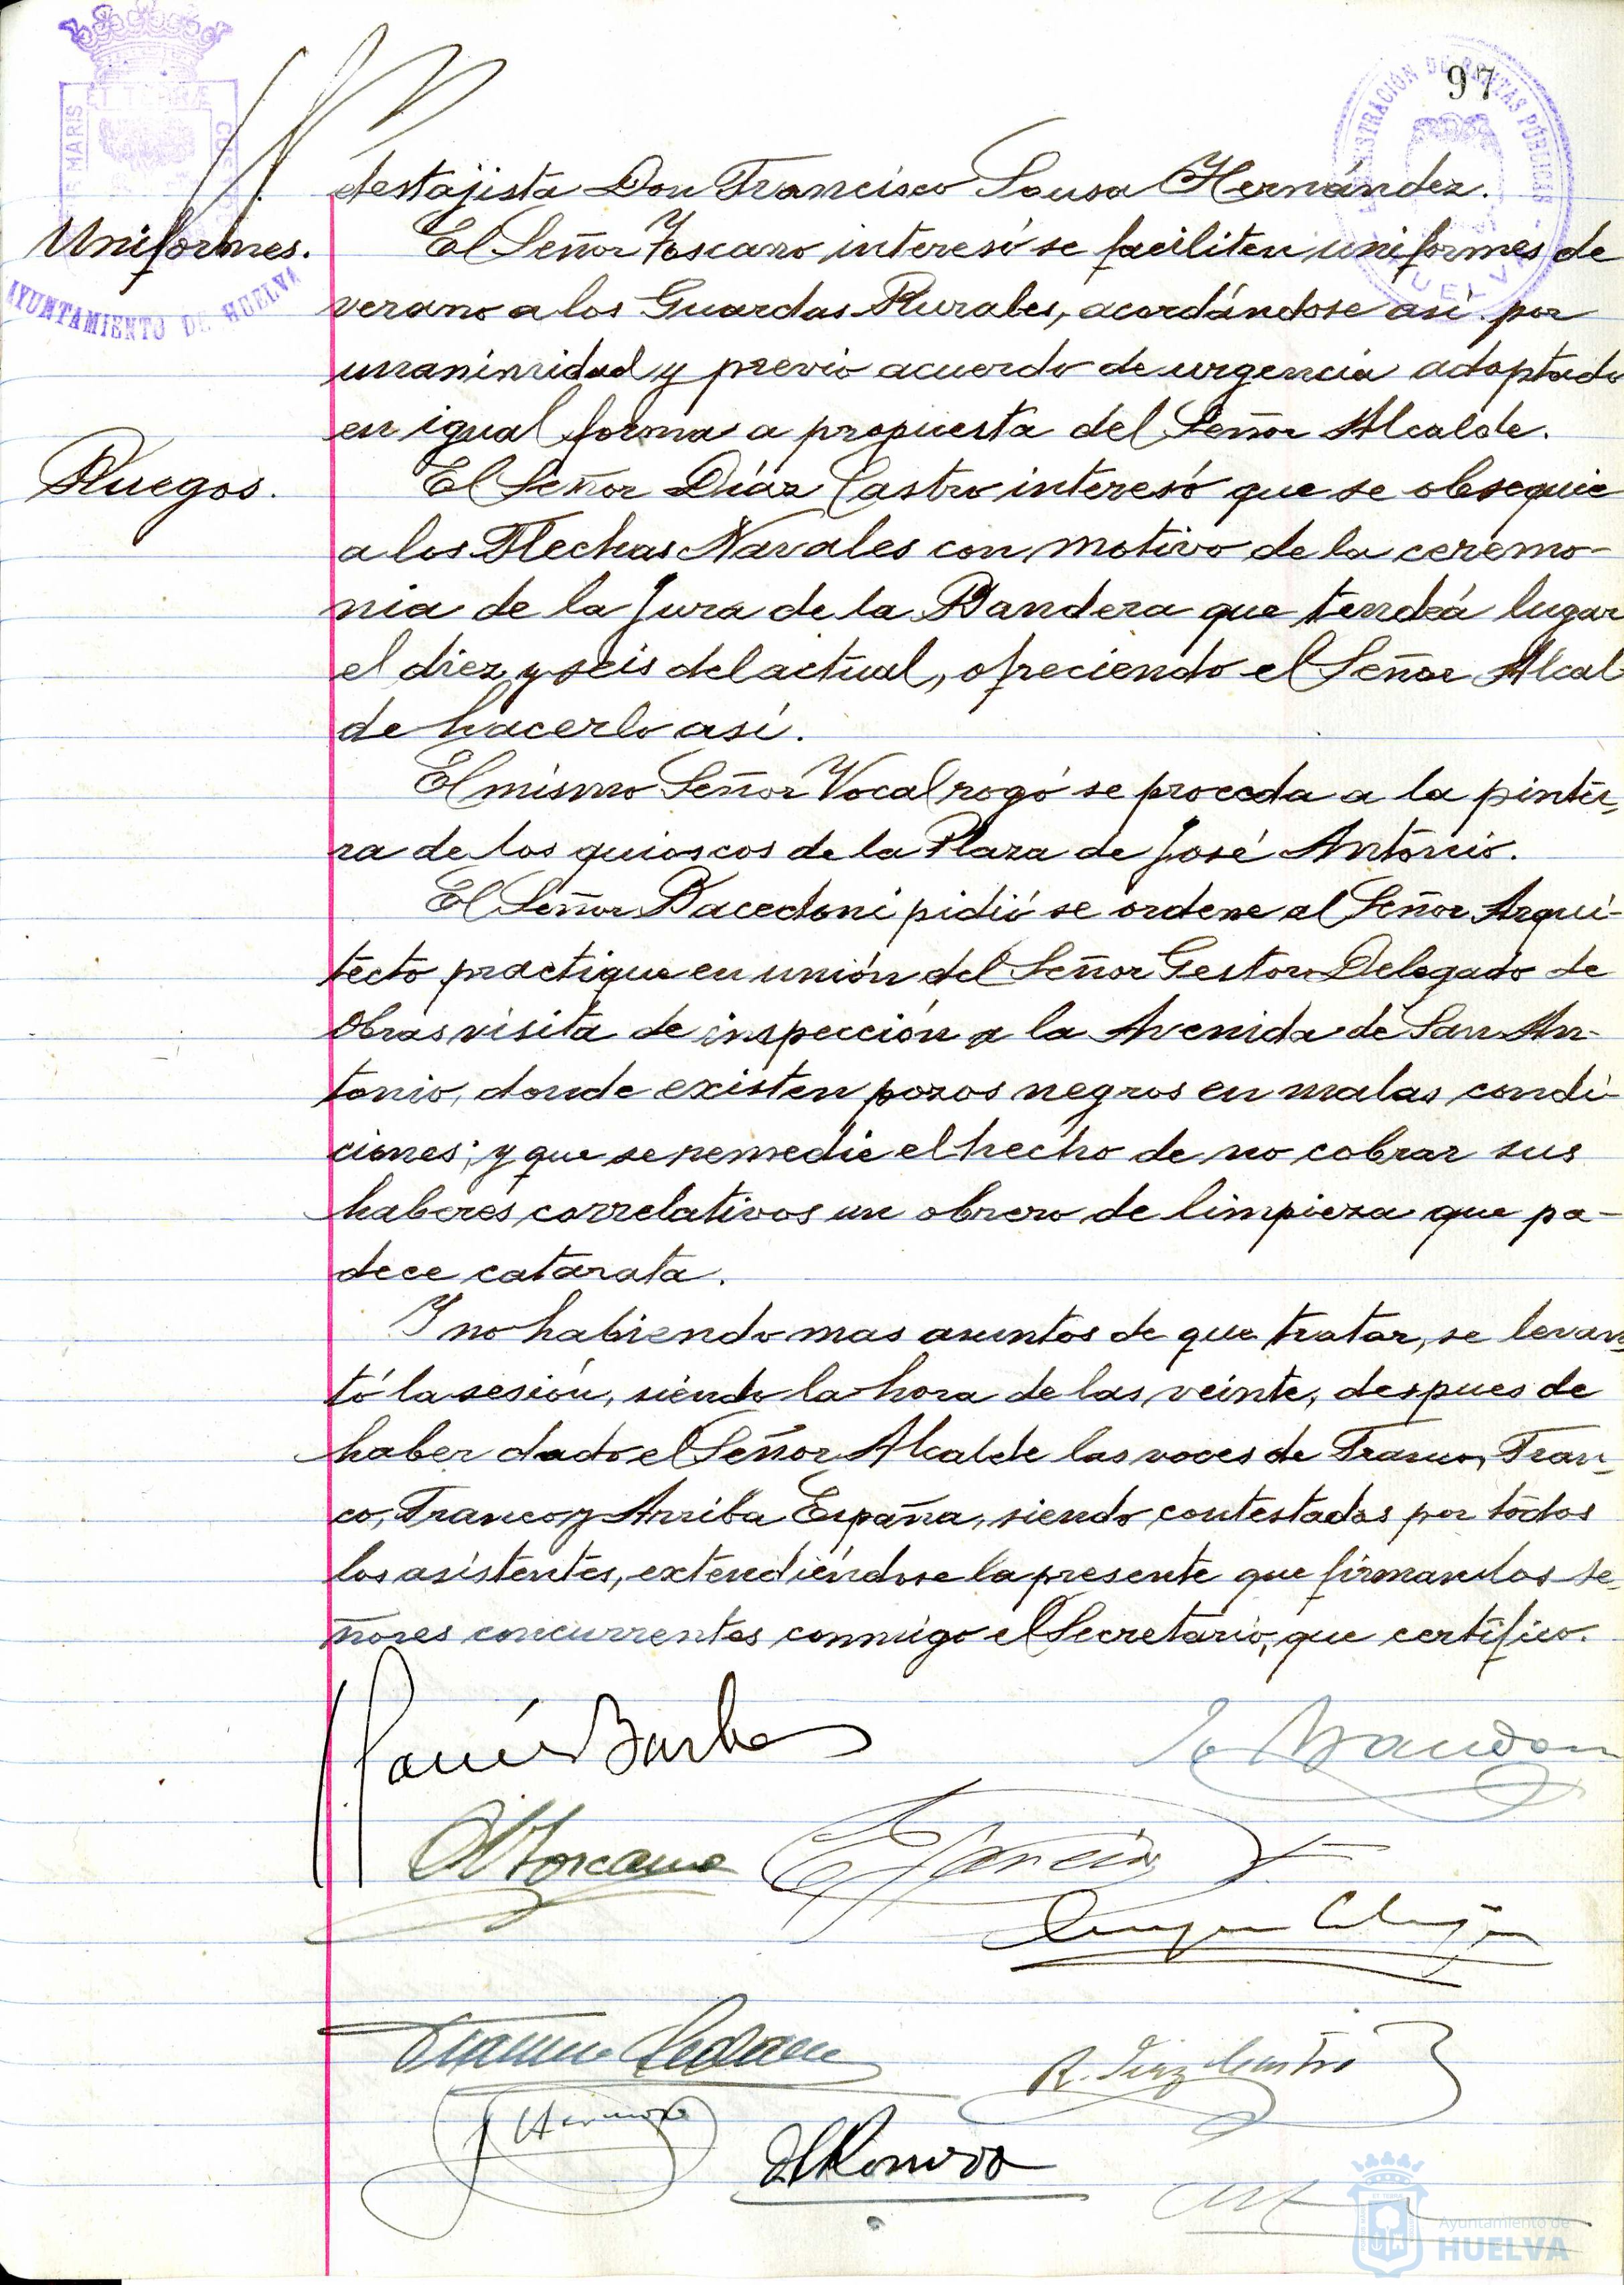 97
ET TERRÆ
MARIS
AYUNTAMIENTO DE HUELVA
ADMINISTRACIÓN DE RENTAS PÚBLICAS
HUELVA
destajista Don Francisco Sousa Hernández.
Uniformes.
El Señor Toscano interesó se faciliten uniformes de
verano a los Guardas Rurales, acordándose así por
unanimidad y previo acuerdo de urgencia adoptado
en igual forma a propuesta del Señor Alcalde.
Ruegos.
El Señor Díaz Castro interesó que se obsequie
a los Flechas Navales con motivo de la ceremo-
nia de la Jura de la Bandera que tendrá lugar
el diez y seis del actual, ofreciendo el Señor Alcal
de hacerlo así.
El mismo Señor Vocal rogó se proceda a la pintu-
ra de los quioscos de la Plaza de José Antonio.
El Señor pidió se ordene al Señor Arqui-
tecto practique en unión del Señor Gestor Delegado de
Obras visita de inspección a la Avenida de San An-
tonio, donde existen pozos negros en malas condi-
ciones; y que se remedie el hecho de no cobrar sus
haberes correlativos un obrero de limpieza que pa-
dece catarata.
Y no habiendo mas asuntos de que tratar, se levan-
tó la sesión, siendo la hora de las veinte, despues de
haber dado el Señor Alcalde las voces de Franco, Fran-
co, Franco y Arriba España, siendo contestadas por todos
los asistentes, extendiéndose la presente que firman los se-
ñores concurrentes conmigo el Secretario, que certifico.
Toscano
García
R. Díaz Castro
Romero
Ayuntamiento de
HUELVA